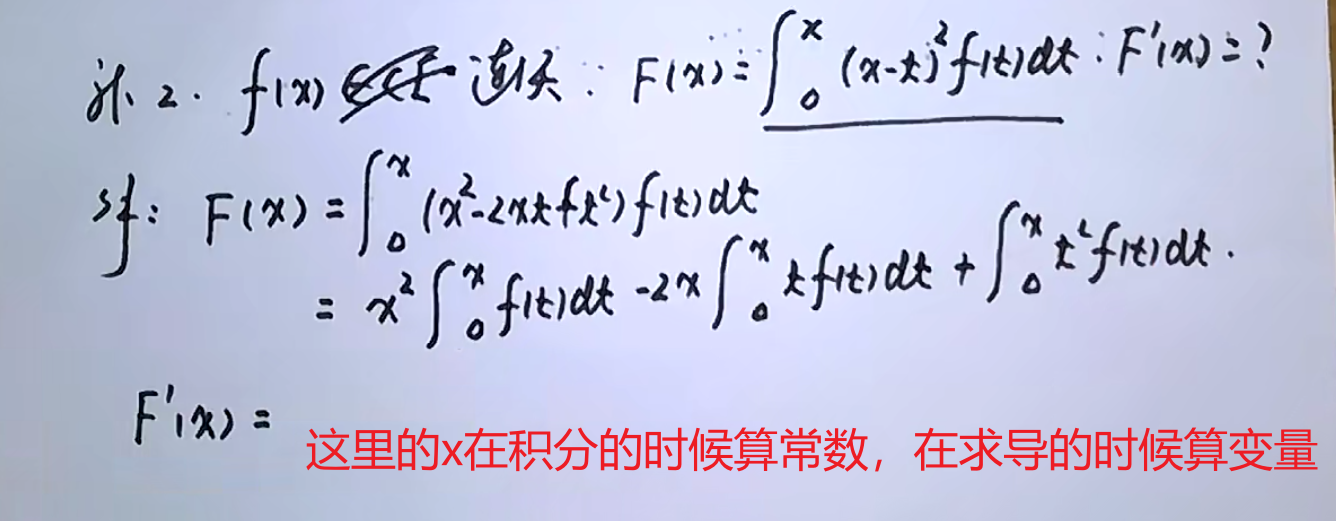 例2. f(x) 连续: F(x)=∫₀ˣ (x-t)²f(t)dt : F'(x)=?
解: F(x)=∫₀ˣ (x²-2xt+t²)f(t)dt
= x²∫₀ˣ f(t)dt -2x∫₀ˣ tf(t)dt + ∫₀ˣ t²f(t)dt.
F'(x)=
这里的x在积分的时候算常数，在求导的时候算变量